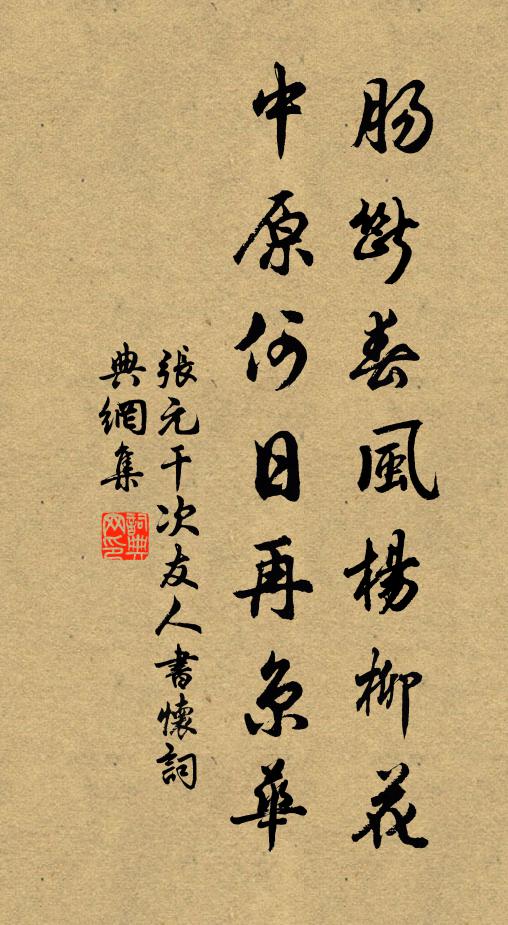 腸斷春風楊柳花
中原何日再京華
張元干次友人書懷詞
典網集
詞典網印